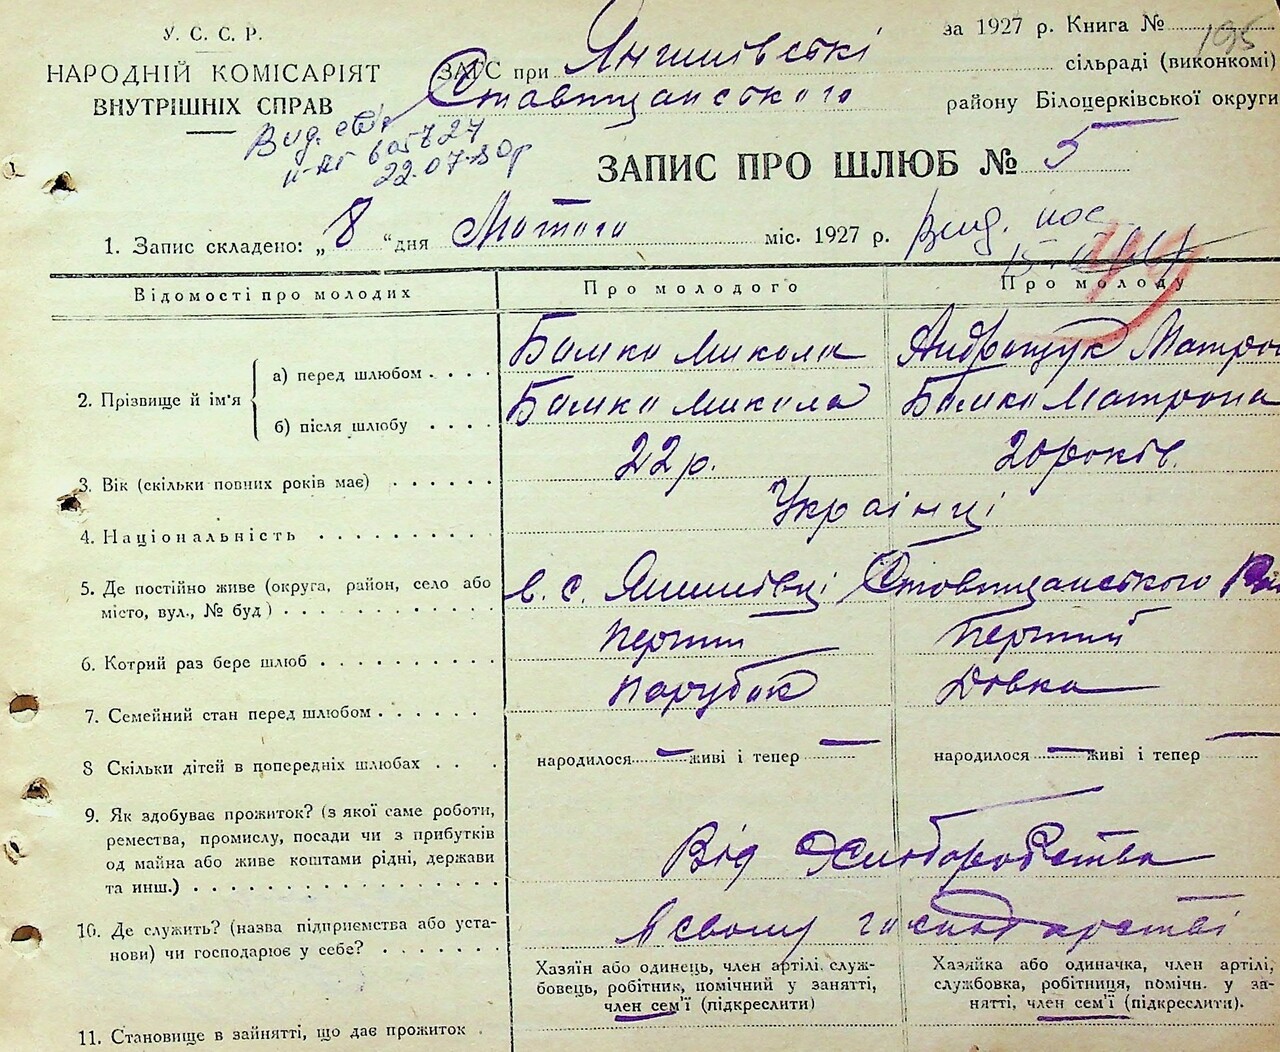 У. С. С. Р.
НАРОДНІЙ КОМІСАРІЯТ
ВНУТРІШНІХ СПРАВ
ЗАГС при Янишівські сільраді (виконкомі)
за 1927 р. Книга № 195
Ставищанського району Білоцерківської округи
Вид. свід
22.07.80р
ЗАПИС ПРО ШЛЮБ № 5
1. Запис складено: „8“ дня Лютого міс. 1927 р.
Вид.
Відомості про молодих
Про молодого
Про молоду
2. Прізвище й ім'я
а) перед шлюбом . . . . Бомко Микола Андрощук Матро
б) після шлюбу . . . . Бомко Микола Бомко Матрона
3. Вік (скільки повних років має) . . . . . . 22 р. 20 років.
4. Національність . . . . . . . . . . Українці
5. Де постійно живе (округа, район, село або
місто, вул., № буд) . . . . . . . . . . в. с. Янишівці Ставищанського
6. Котрий раз бере шлюб . . . . . . . . . . Перший Перший
7. Семейний стан перед шлюбом . . . . . . Парубок Дівка
8 Скільки дітей в попередніх шлюбах . . . . народилося — живі і тепер — народилося — живі і тепер —
9. Як здобуває прожиток? (з якої саме роботи,
ремества, промислу, посади чи з прибутків
од майна або живе коштами рідні, держави
та инш.) . . . . . . . . . . . . . . . . Від Хліборобства
10. Де служить? (назва підприємства або уста-
нови) чи господарює у себе? . . . . . . В свому господарстві
Хазяїн або одинець, член артілі, служ-
бовець, робітник, помічний у занятті,
член сем'ї (підкреслити)
Хазяйка або одиначка, член артілі,
службовка, робітниця, помічн. у за-
нятті, член сем'ї (підкреслити).
11. Становище в зайнятті, що дає прожиток .